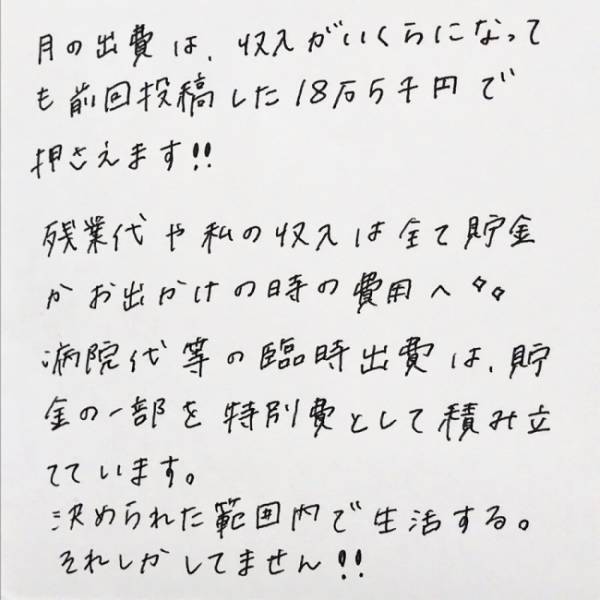 月の出費は、収入がいくらになって
も前回投稿した18万5千円で
押さえます!!
残業代や私の収入は全て貯金
かお出かけの時の費用へ
病院代等の臨時出費は、貯
金の一部を特別費として積み立
てています。
決められた範囲内で生活する。
それしかしてません!!